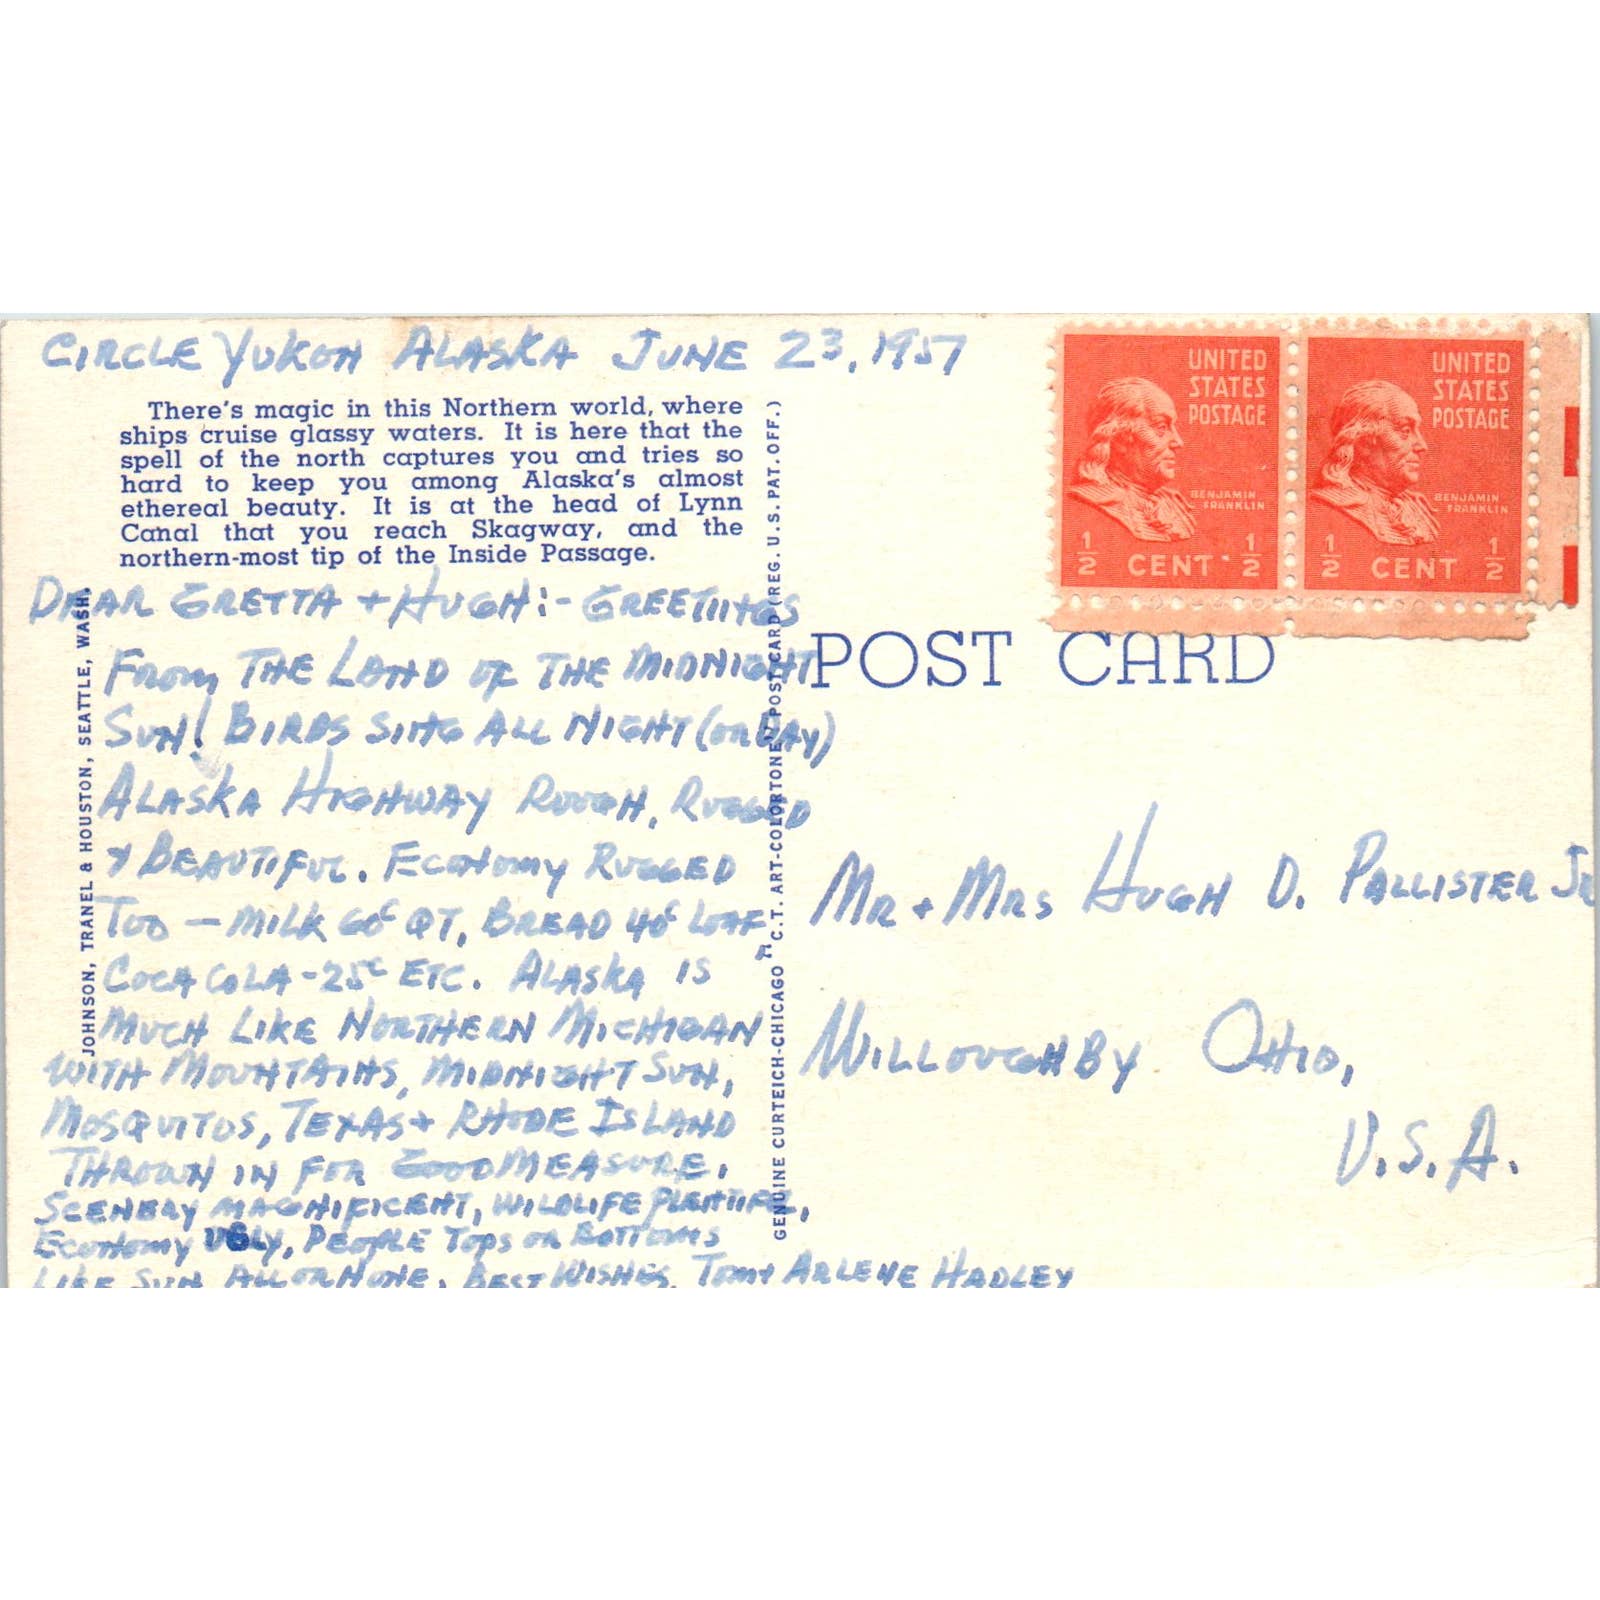 CIRCLE YUKON ALASKA JUNE 23, 1957
There's magic in this Northern world, where
ships cruise glassy waters. It is here that the
spell of the north captures you and tries so
hard to keep you among Alaska's almost
ethereal beauty. It is at the head of Lynn
Canal that you reach Skagway, and the
northern-most tip of the Inside Passage.
DEAR GRETTA + HUGH:- GREETINGS
FROM THE LAND OF THE MIDNIGHT
SUN! BIRDS SING ALL NIGHT (OR DAY)
ALASKA HIGHWAY ROUGH, RUGGED
& BEAUTIFUL. ECONOMY RUGGED
TOO - MILK 60¢ QT, BREAD 40¢ LOAF
COCA COLA - 25¢ ETC. ALASKA IS
MUCH LIKE NORTHERN MICHIGAN
WITH MOUNTAINS, MIDNIGHT SUN,
MOSQUITOS, TEXAS + RHODE ISLAND
THROWN IN FOR GOOD MEASURE.
SCENERY MAGNIFICENT, WILDLIFE PLENTIFUL,
ECONOMY UGLY, PEOPLE TOPS OR BOTTOMS
LIKE SUN ALL OR NONE. BEST WISHES, TOM + ARLENE HADLEY
JOHNSON, TRANEL & HOUSTON, SEATTLE, WASH.
GENUINE CURTEICH-CHICAGO "C.T. ART-COLORTONE" POST CARD (REG. U.S. PAT. OFF.)
UNITED
STATES
POSTAGE
BENJAMIN
FRANKLIN
1/2 CENT 1/2
UNITED
STATES
POSTAGE
BENJAMIN
FRANKLIN
1/2 CENT 1/2
POST CARD
MR + MRS HUGH D. PALLISTER JR
WILLOUGHBY OHIO,
U.S.A.